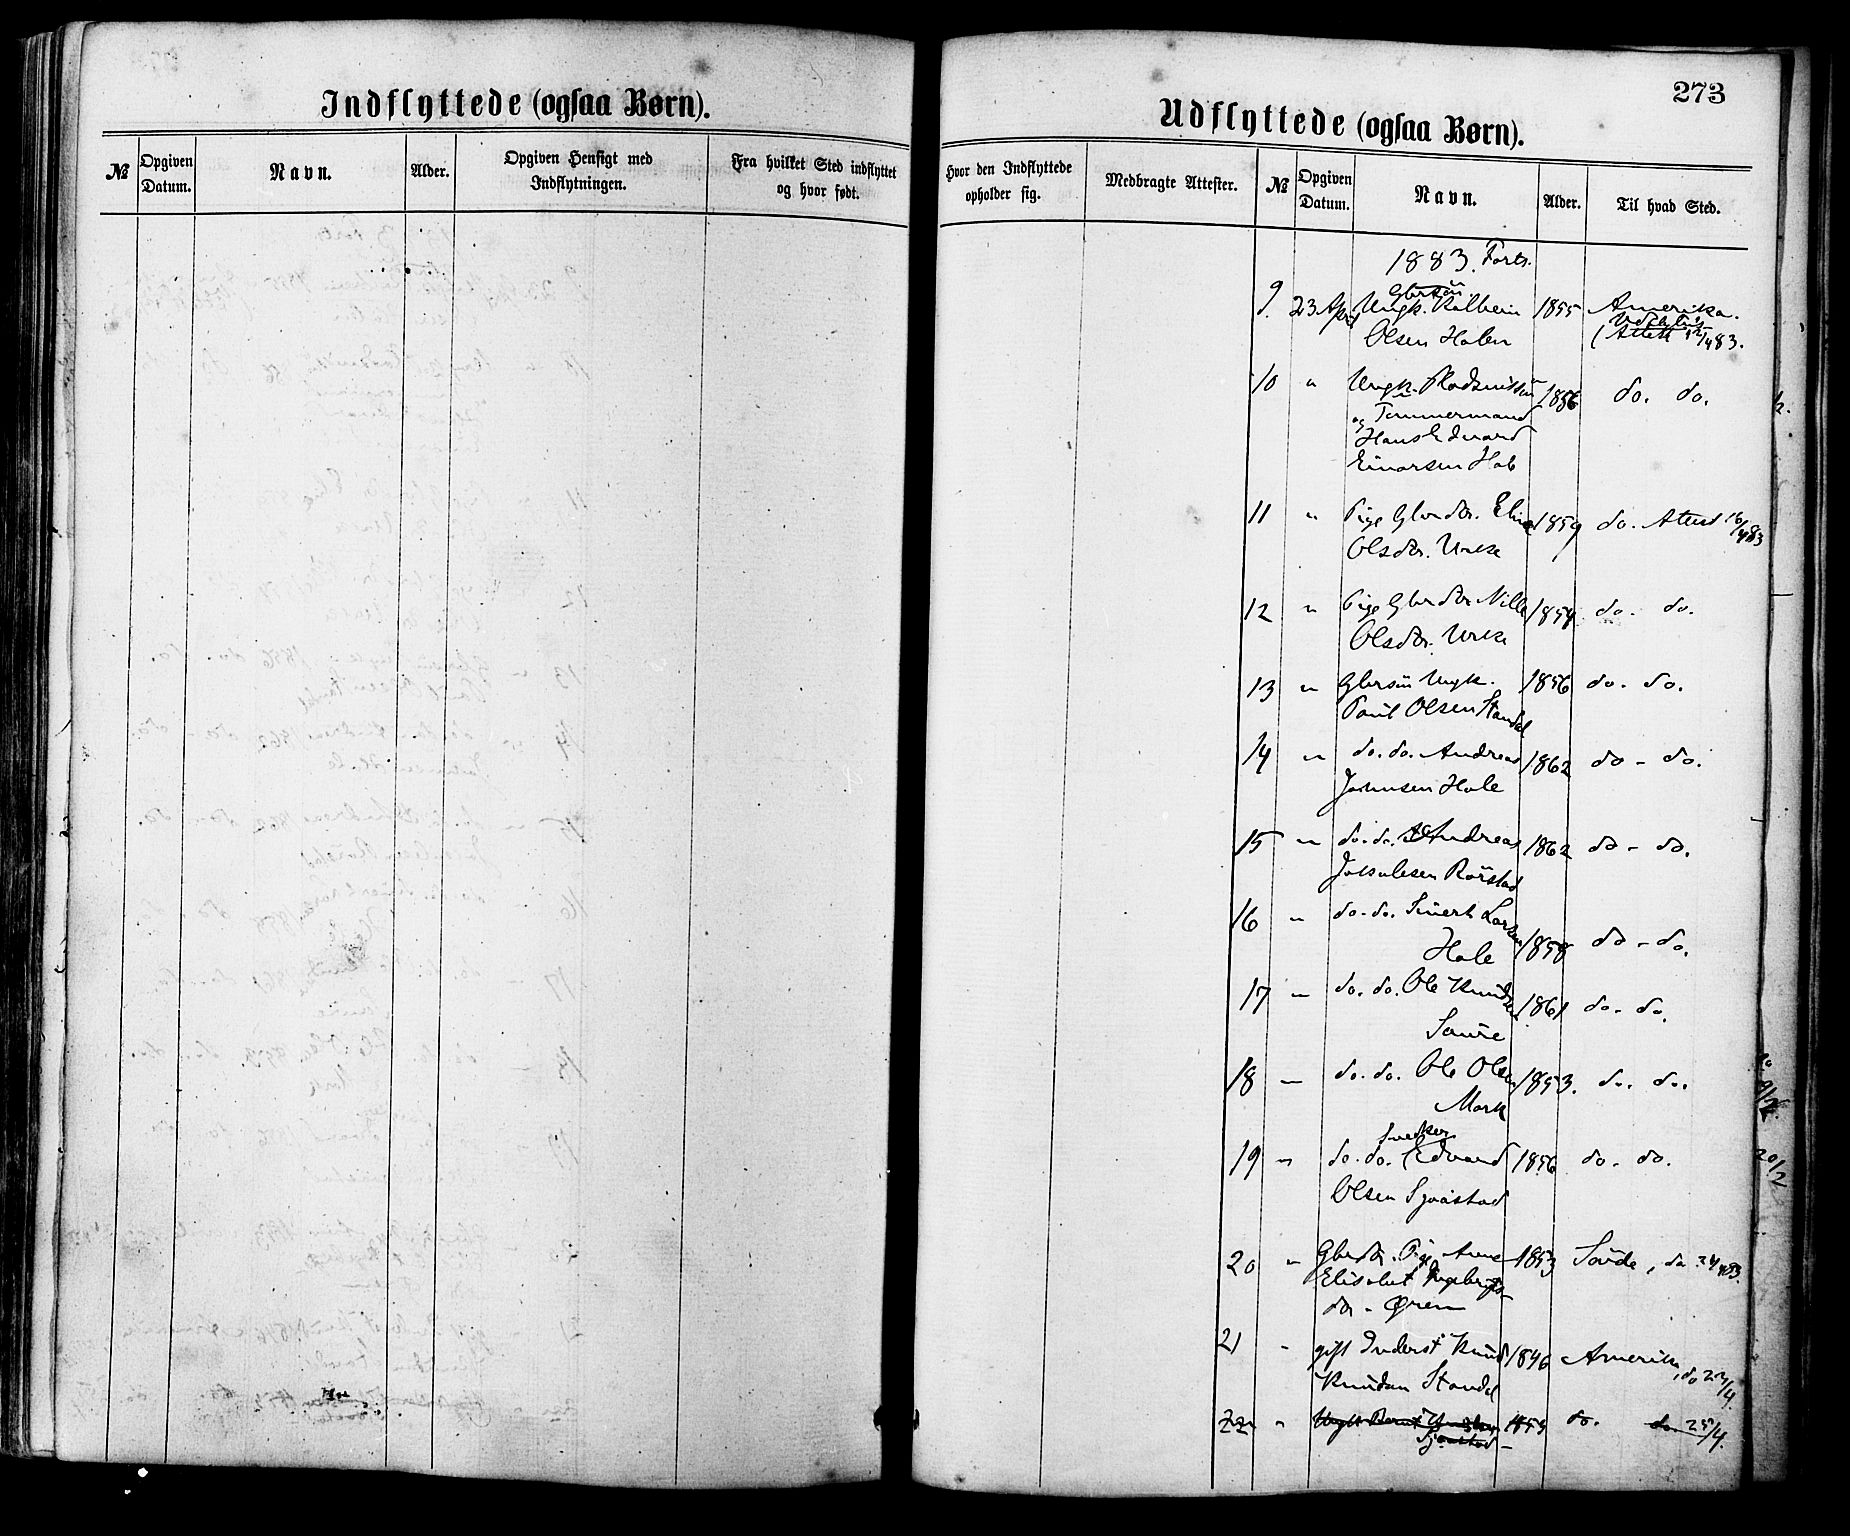 Indflyttede (ogsaa Børn).
№
Opgiven Datum.
Navn.
Alder.
Opgiven Hensigt med Indflytningen.
Fra hvilket Sted indflyttet og hvor født.
273
Udflyttede (ogsaa Børn).
Hvor den Indflyttede opholder sig.
Medbragte Attester.
№
Opgiven Datum.
Navn.
Alder.
Til hvad Sted.
1883. Forts.
Gbrsøn
9. 23 April Ungk. Kolbein 1855 Amerika.
Olsen Halen (Attest 12/4 83.
10 " Ungk. 1856 do. do.
og Tømmermand
Hans Edvard
Einarsen Hole
11 " Pige Gbrdtr. Eline 1859 do. Attest 16/4 83
Olsdtr. Urke
12 " Pige Gbrdtr Nille 1854 do. do.
Olsdtr. Urke
13 " Gbrsøn Ungk. 1856 do. do.
Paul Olsen Standal
14 " do. do. Andreas 1862 do - do.
Johnsen Hole
15 " do. do. Andreas 1862 do - do.
Rørstad
16 " do. do. Sivert Larsen
Hole 1858 do - do.
17 " do. do. Ole Knudsen 1861 do. do.
Saure
18 " do. do. Ole Olsen 1853. do. do.
Mork
Snedker
19 " do. do. Edvard 1856 do. do.
Olsen Sjaastad
20 " Gbrdtr. Pige Anne 1853 Søvde, do 24/4 83.
Elisabet Ingebrigts-
dtr - Øren
21 " gift Inderst Knud 1846 Amerika, do 23/4.
Knudsen Standal
22 " Ungk Bernt 1859 do. do 25/4.
Sjaastad